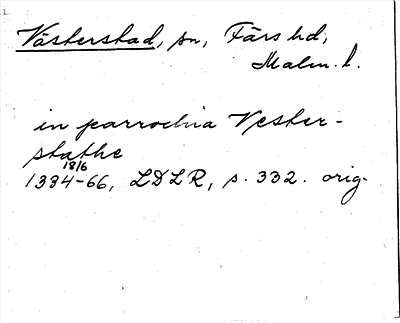 Västerstad, sn, Färs hd,
Malm. l.
in parrochia Vester-
stathe
18/6
1384-66, LDLR, s. 332. orig.